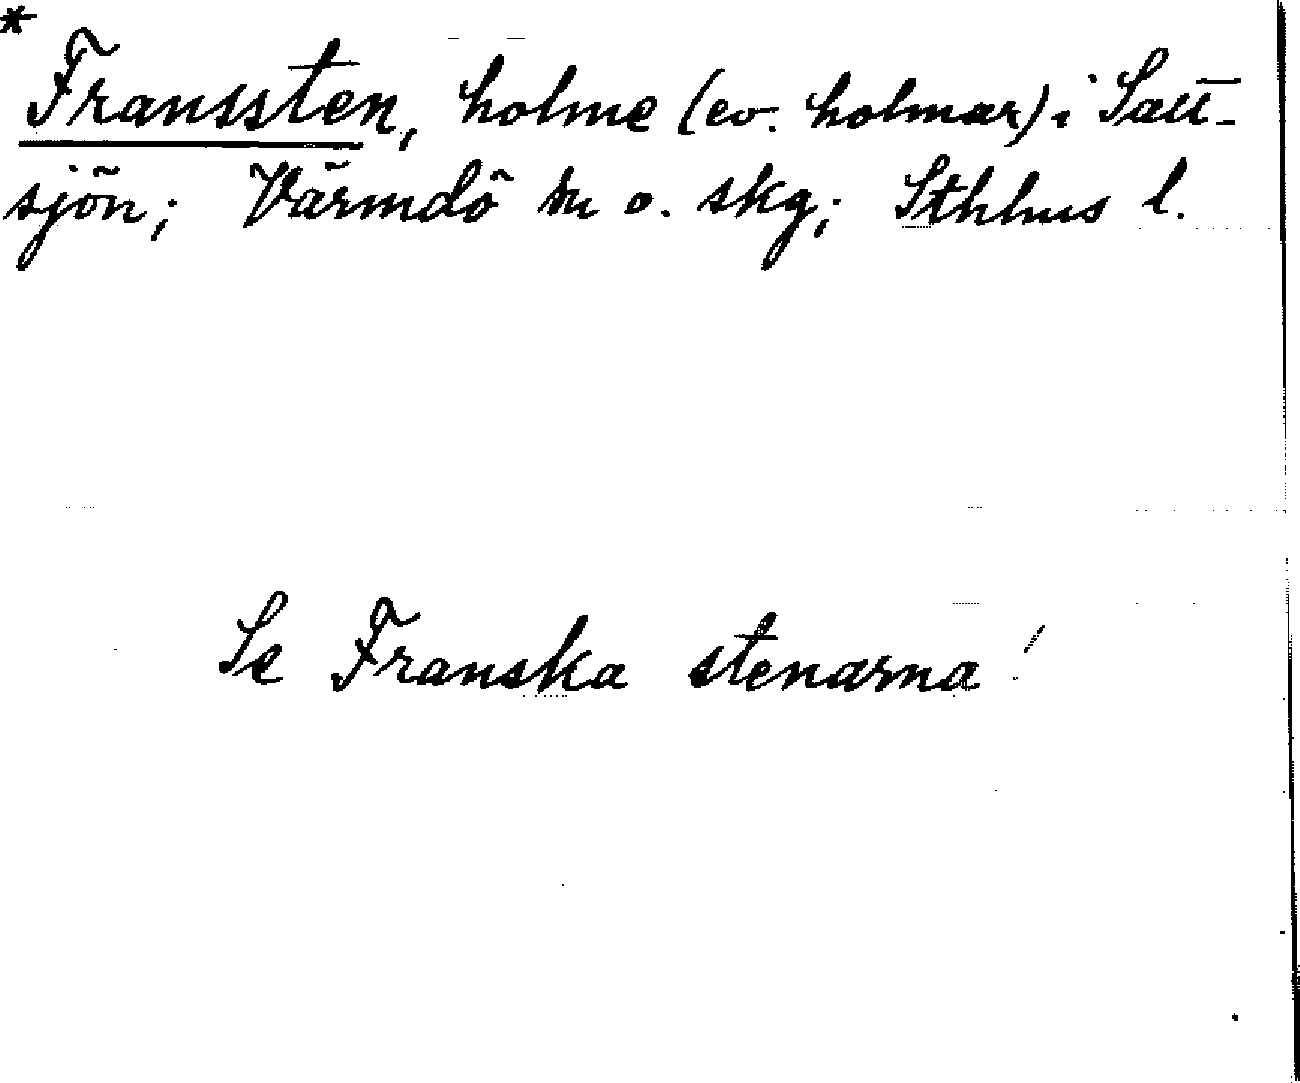 * Franssten, holme (ev. holmar) i Salt-
sjön; Värmdö sn o. skg; Sthlms l.
Se Franska stenarna!